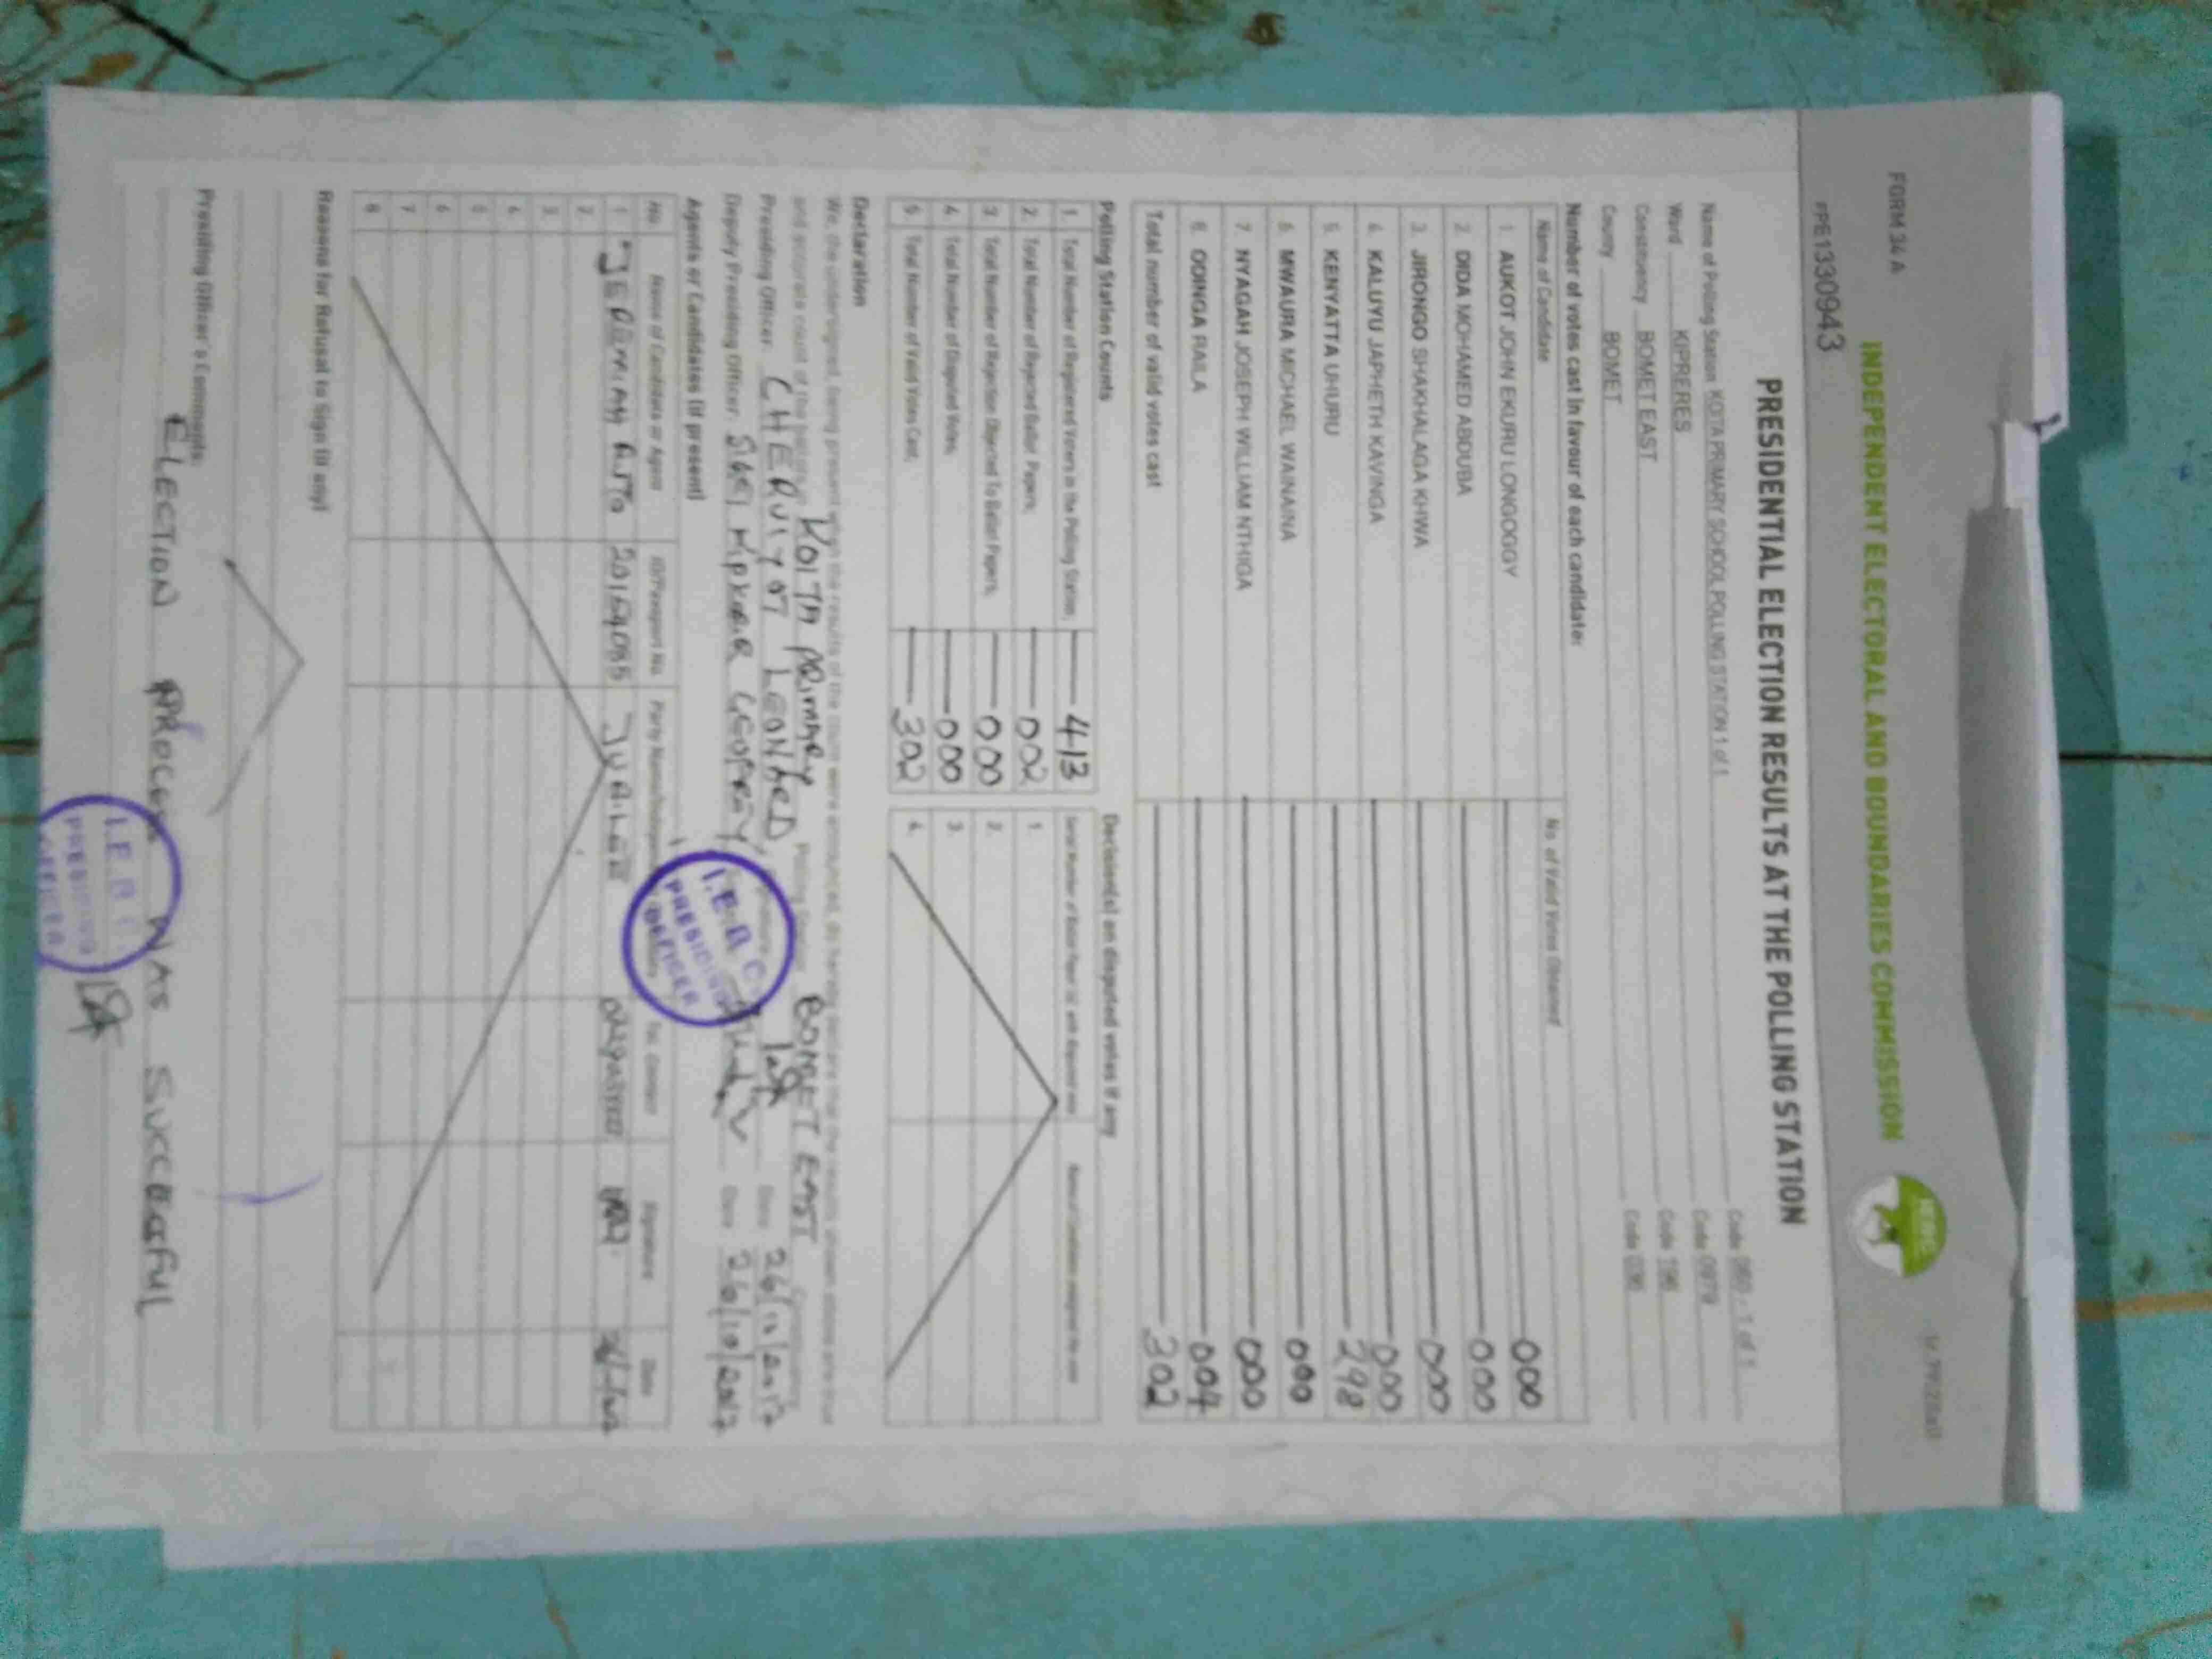 FORM 34 A
INDEPENDENT ELECTORAL AND BOUNDARIES COMMISSION
IEBC
PPE1330943
PRESIDENTIAL ELECTION RESULTS AT THE POLLING STATION
Name of Polling Station KOITA PRIMARY SCHOOL POLLING STATION 1 of 1 Code 1 of 1
Ward KIPRERES Code 0979
Constituency BOMET EAST Code 196
County BOMET Code 036
Number of votes cast in favour of each candidate:
Name of Candidate No. of Valid Votes Obtained
1. AUKOT JOHN EKURU LONGOGGY 000
2. DIDA MOHAMED ABDUBA 000
3. JIRONGO SHAKHALAGA KHWA 000
4. KALUYU JAPHETH KAVINGA 000
5. KENYATTA UHURU 298
6. MWAURA MICHAEL WAINAINA 000
7. NYAGAH JOSEPH WILLIAM NTHIGA 000
8. ODINGA RAILA 004
Total number of valid votes cast 302
Polling Station Counts
1. Total Number of Registered Voters in the Polling Station; 413
2. Total Number of Rejected Ballot Papers; 002
3. Total Number of Rejection Objected To Ballot Papers; 000
4. Total Number of Disputed Votes; 000
5. Total Number of Valid Votes Cast; 302
Decision(s) on disputed votes if any
1.
2.
3.
4.
Declaration
We, the undersigned, being present when the results of the count were announced, do hereby declare that the results shown above are true
and accurate count of the ballots in KOITA PRIMARY Polling Station BOMET EAST Constituency
Presiding Officer: CHERUIYOT LEONARD Date 26/10/2017
Deputy Presiding Officer: SIGEI KIPKOIR GEOFREY Date 26/10/2017
I.E.B.C. PRESIDING OFFICER
Agents or Candidates (if present)
No. Name of Candidate or Agent ID/Passport No. Tel. Contact Signature Date
1 JEREMIAH RUTO JUBILEE
2
3
4
5
6
7
8
Reasons for Refusal to Sign (if any)
Presiding Officer's Comments:
ELECTION PROCESS WAS SUCCESSFUL
I.E.B.C. PRESIDING OFFICER